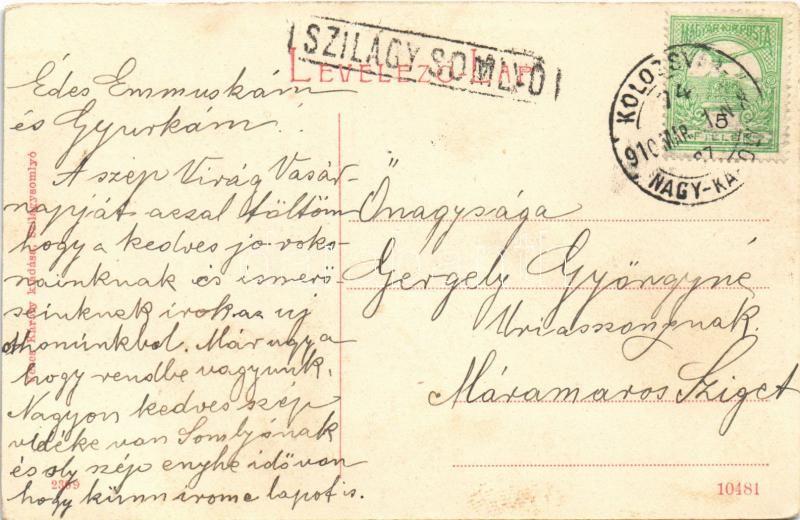 SZILÁGY SOMLYÓ
LEVELEZŐ-LAP
MAGYAR KIR. POSTA
KOLOZSVÁR
910 MÁR.
NAGY-KÁ
Édes Emmuskám
és Gyurkám!
A szép Virág Vasár-
napját azzal töltöm
hogy a kedves jo roko-
nainknak és ismerő-
seinknek irok az uj
othonunkbol. Már ugy a
hogy rendbe vagyunk.
Nagyon kedves szép
vidéke van Somlyónak
és oly szép enyhe idő van
hogy künn irom e lapot is.
Őnagysága
Gergely Györgyné
Uriasszonynak.
Máramaros Sziget
Károly kiadása, Szilágysomlyó
2399
10481